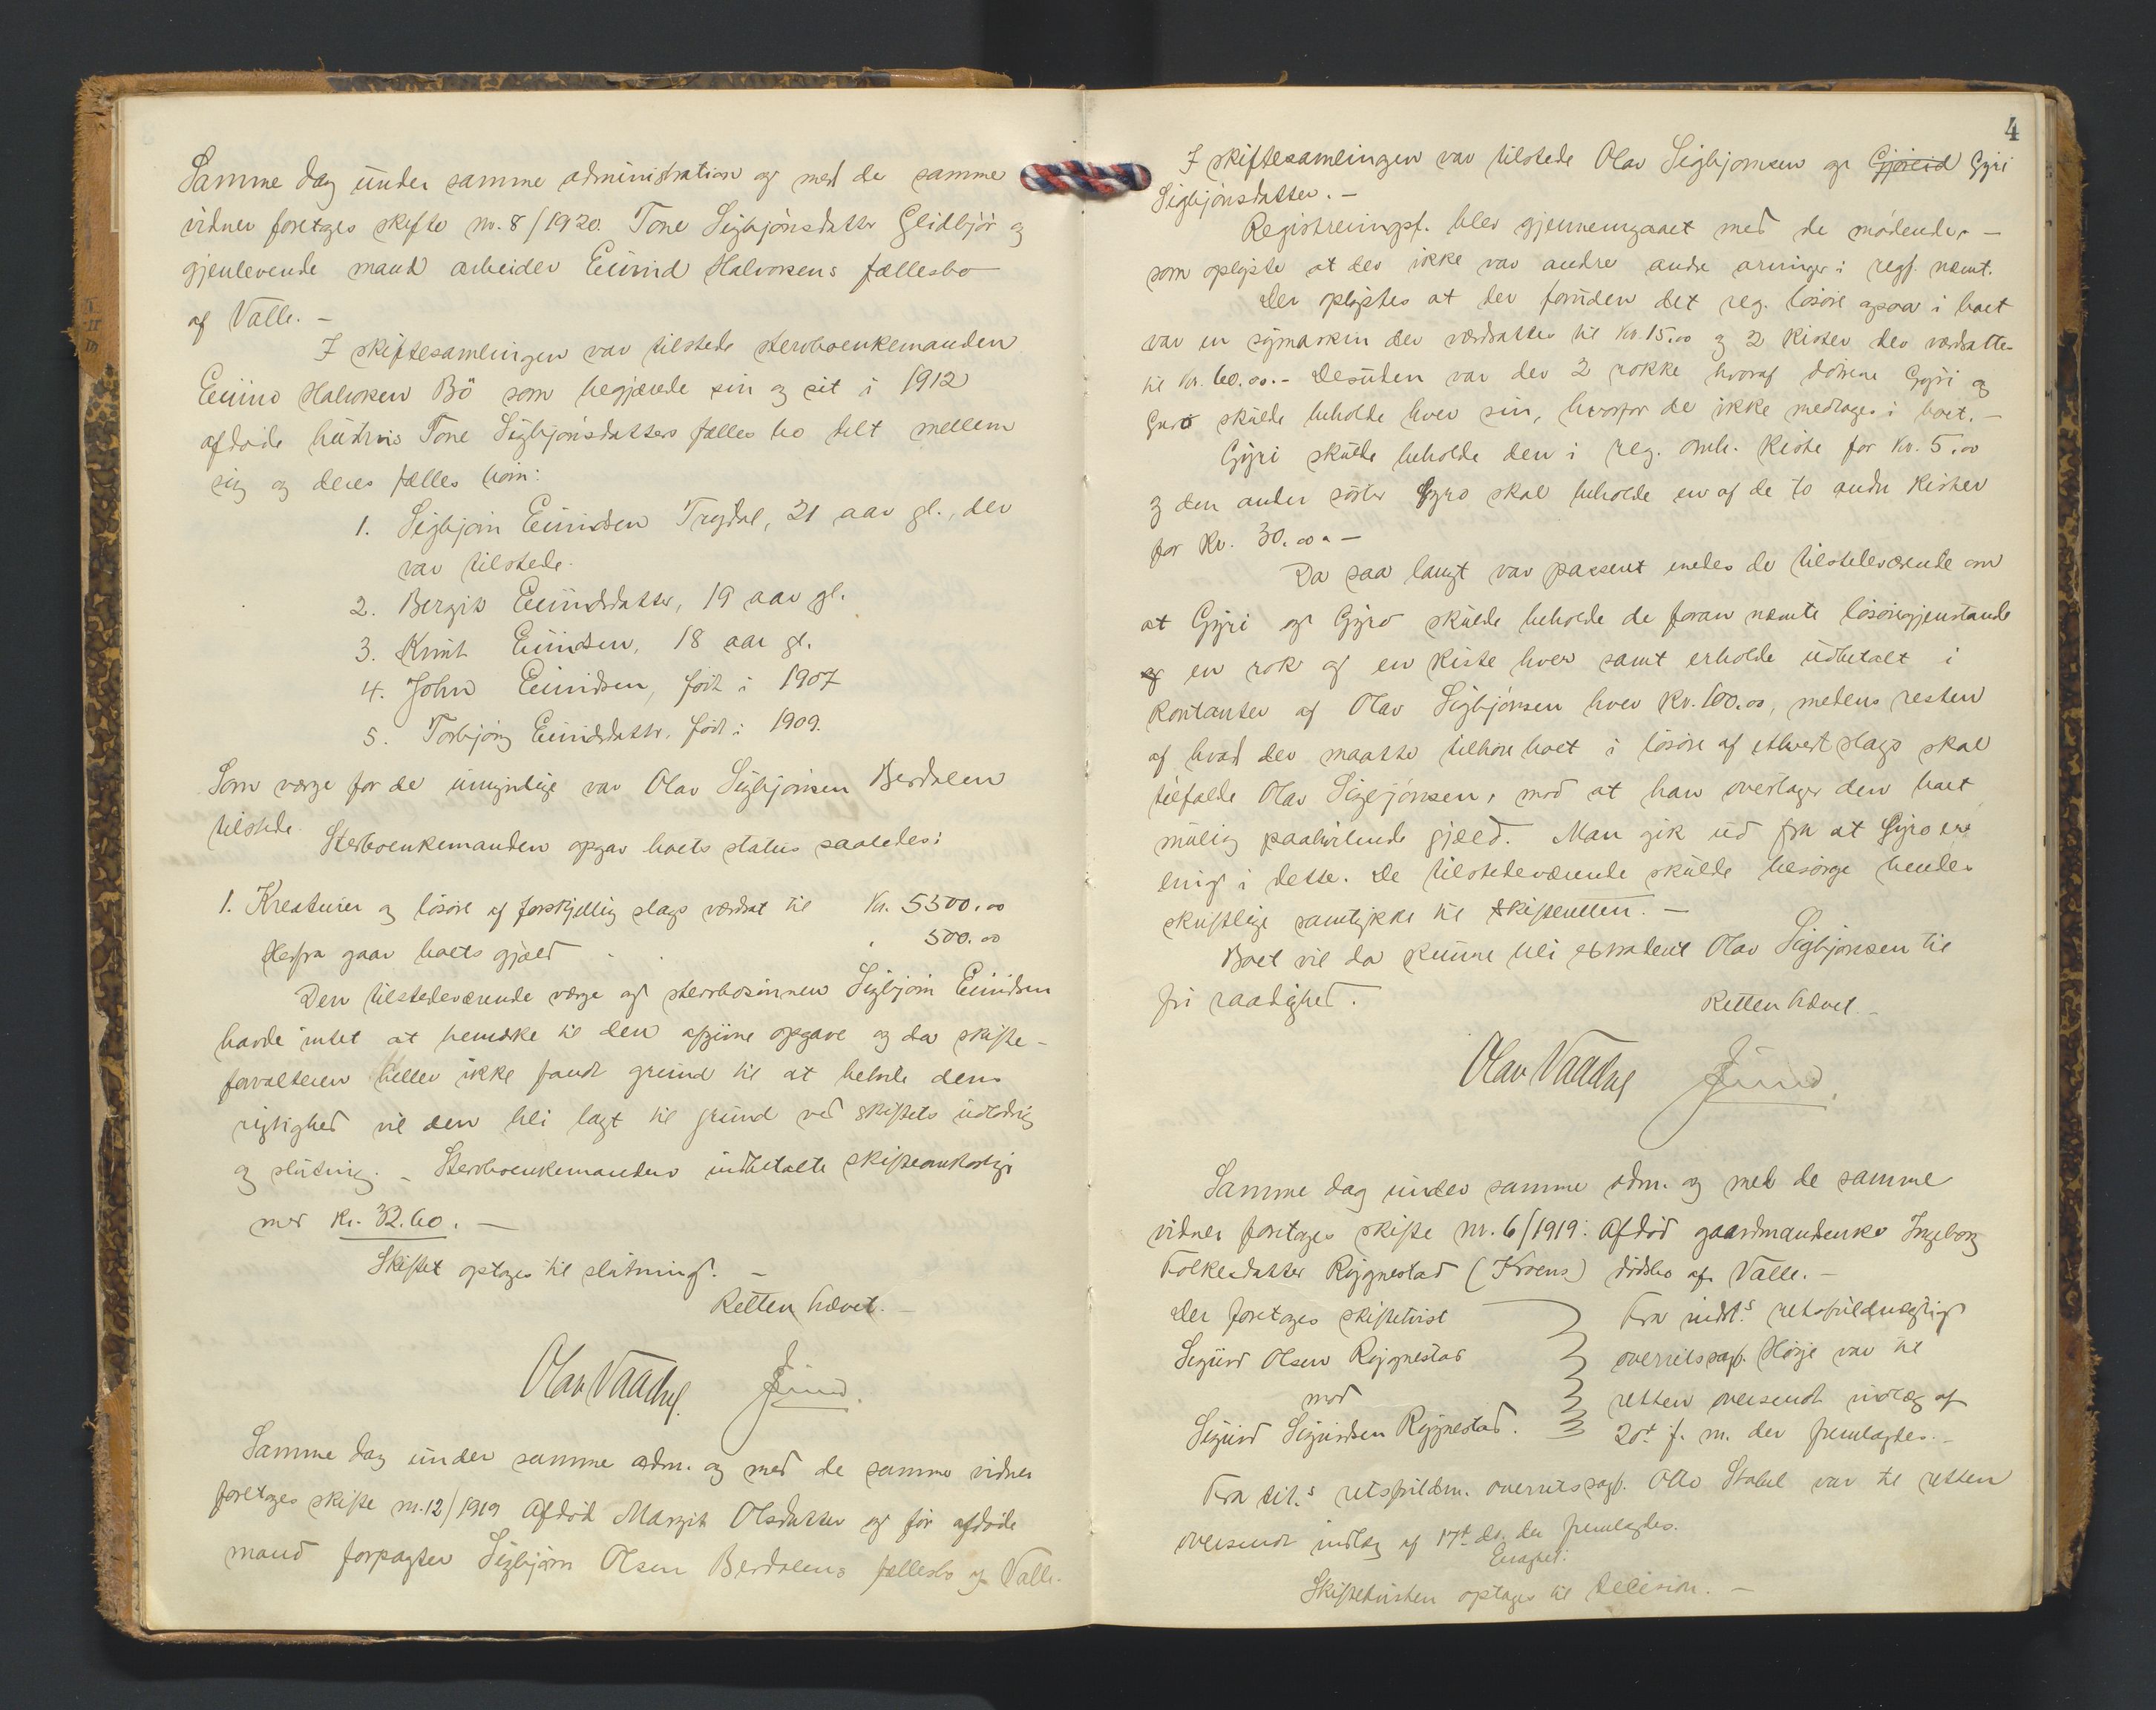 Samme dag under samme administration og med de samme
vidner foretoges skifte nr. 8/1920. Tone Sigbjørnsdatter Glidbjør og
gjenlevende mand arbeider Eivind Halvorsens fællesbo
af Valle. –
I skiftesamlingen var tilstede sterboenkemanden
Eivind Halvorsen Bö som begjærede sin og sit i 1912
afdøde hustrus Tone Sigbjørnsdatters fælles bo delt mellem
sig og deres fælles børn:
1. Sigbjørn Eivindsen Trydal, 21 aar gl., der
var tilstede.
2. Bergit Eivindsdatter, 19 aar gl.
3. Knut Eivindsen, 18 aar gl.
4. John Eivindsen, født i 1907
5. Torbjørg Eivindsdatter, født i 1909.
Som værge for de umyndige var Olav Sigbjørnsen Berdalen
tilstede.
Sterboenkemanden opgav boets status saaledes:
1. Kreaturer og løsøre af forskjellig slags værdsat til Kr. 5300.00
Herfra gaar boets gjæld . . „ 500.00
Den tilstedeværende værge og sterbosønnen Sigbjørn Eivindsen
havde intet at bemerke til den afgivne opgave og da skifte-
forvalteren heller ikke fandt grund til at betvile dens
rigtighed vil den bli lagt til grund ved skiftets udlodning
og slutning. – Sterboenkemanden indbetalte skifteomkostninger
med kr. 32.60. –
Skiftet optoges til slutning. –
Retten hævet. –
Olav Vaadug. Juud.
Samme dag under samme adm. og med de samme vidner
foretoges skifte nr. 12/1919 Afdød Margit Olsdatter og før afdøde
mand forpagter Sigbjørn Olsen Berdalens fællesbo af Valle.
4
I skiftesamlingen var tilstede Olav Sigbjørnsen og Gyri
Sigbjørnsdatter. –
Registreringsf. blev gjennemgaaet med de mødende, –
som oplyste at der ikke var andre andre arvinger i regf. nævnt.
Der oplystes at der foruden det reg. løsøre ogsaa i boet
var en symaskin der værdsattes til kr. 15.00 og 2 kister der værdsattes
til kr. 60.00. – Desuden var der 2 rokke hvoraf døtrene Gyri og
Guro skulde beholde hver sin, hvorfor de ikke medtages i boet. –
Gyri skulde beholde den i reg. omh. kiste for kr. 5.00
og den anden søster Gyro skal beholde en af de to andre kister
for kr. 30.00. –
Da saa langt var passeret enedes de tilstedeværende om
at Gyri og Gyro skulde beholde de foran nævnte løsøregjenstande
og en rok og en kiste hver samt erholde udbetalt i
kontanter af Olav Sigbjørnsen hver kr. 100.00, medens resten
af hvad der maatte tilhøre boet i løsøre af ethvert slags skal
tilfalde Olav Sigbjørnsen, mod at han overtager den boet
mulig paahvilende gjæld. Man gik ud fra at Gyro er
enig i dette. De tilstedeværende skulde besørge hendes
skriftlige samtykke til skifteretten. –
Boet vil da kunne bli extraderet Olav Sigbjørnsen til
fri raadighed.
Retten hævet. –
Olav Vaadug Juud.
Samme dag under samme adm. og med de samme
vidner foretoges skifte nr. 6/1919: Afdød gaardmandenke Ingeborg
Folkesdatter Rygnestad (Kroens) dødsbo af Valle. –
Der foretoges skiftetvist
Sigurd Olsen Rygnestad
mod
Sigurd Sigurdsen Rygnestad.
Fra indst.s retsfuldmægtig
overretssagf. Hørje var til
retten oversendt indlæg af
20de f. m. der fremlagdes. –
Fra cit.s retsfuldm. overretssagf. Otto Stabel var til retten
oversendt indlæg af 17de ds. der fremlagdes.
Eragtet:
Skiftetvisten optages til decision. –